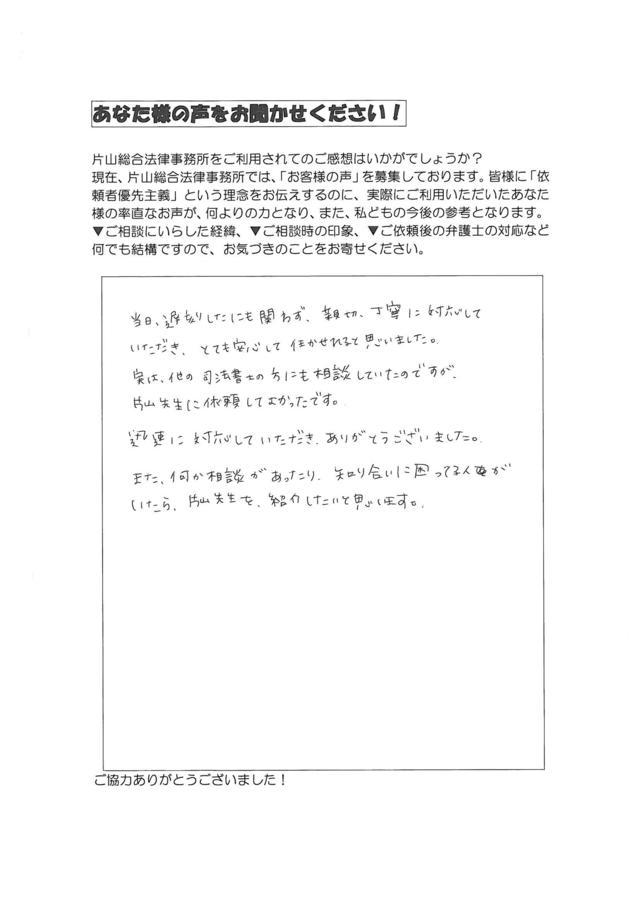 あなた様の声をお聞かせください！
片山総合法律事務所をご利用されてのご感想はいかがでしょうか？
現在、片山総合法律事務所では、「お客様の声」を募集しております。皆様に「依
頼者優先主義」という理念をお伝えするのに、実際にご利用いただいたあなた
様の率直なお声が、何よりの力となり、また、私どもの今後の参考となります。
▼ご相談にいらした経緯、▼ご相談時の印象、▼ご依頼後の弁護士の対応など
何でも結構ですので、お気づきのことをお寄せください。
当日、遅刻したにも関わず、親切、丁寧に対応して
いただき、とても安心して任かせれると思いました。
実は、他の司法書士の方にも相談していたのですが、
片山先生に依頼してよかったです。
迅速に対応していただき、ありがとうございました。
また、何か相談があったり、知り合いに困ってる人が
いたら、片山先生を、紹介したいと思います。
ご協力ありがとうございました！